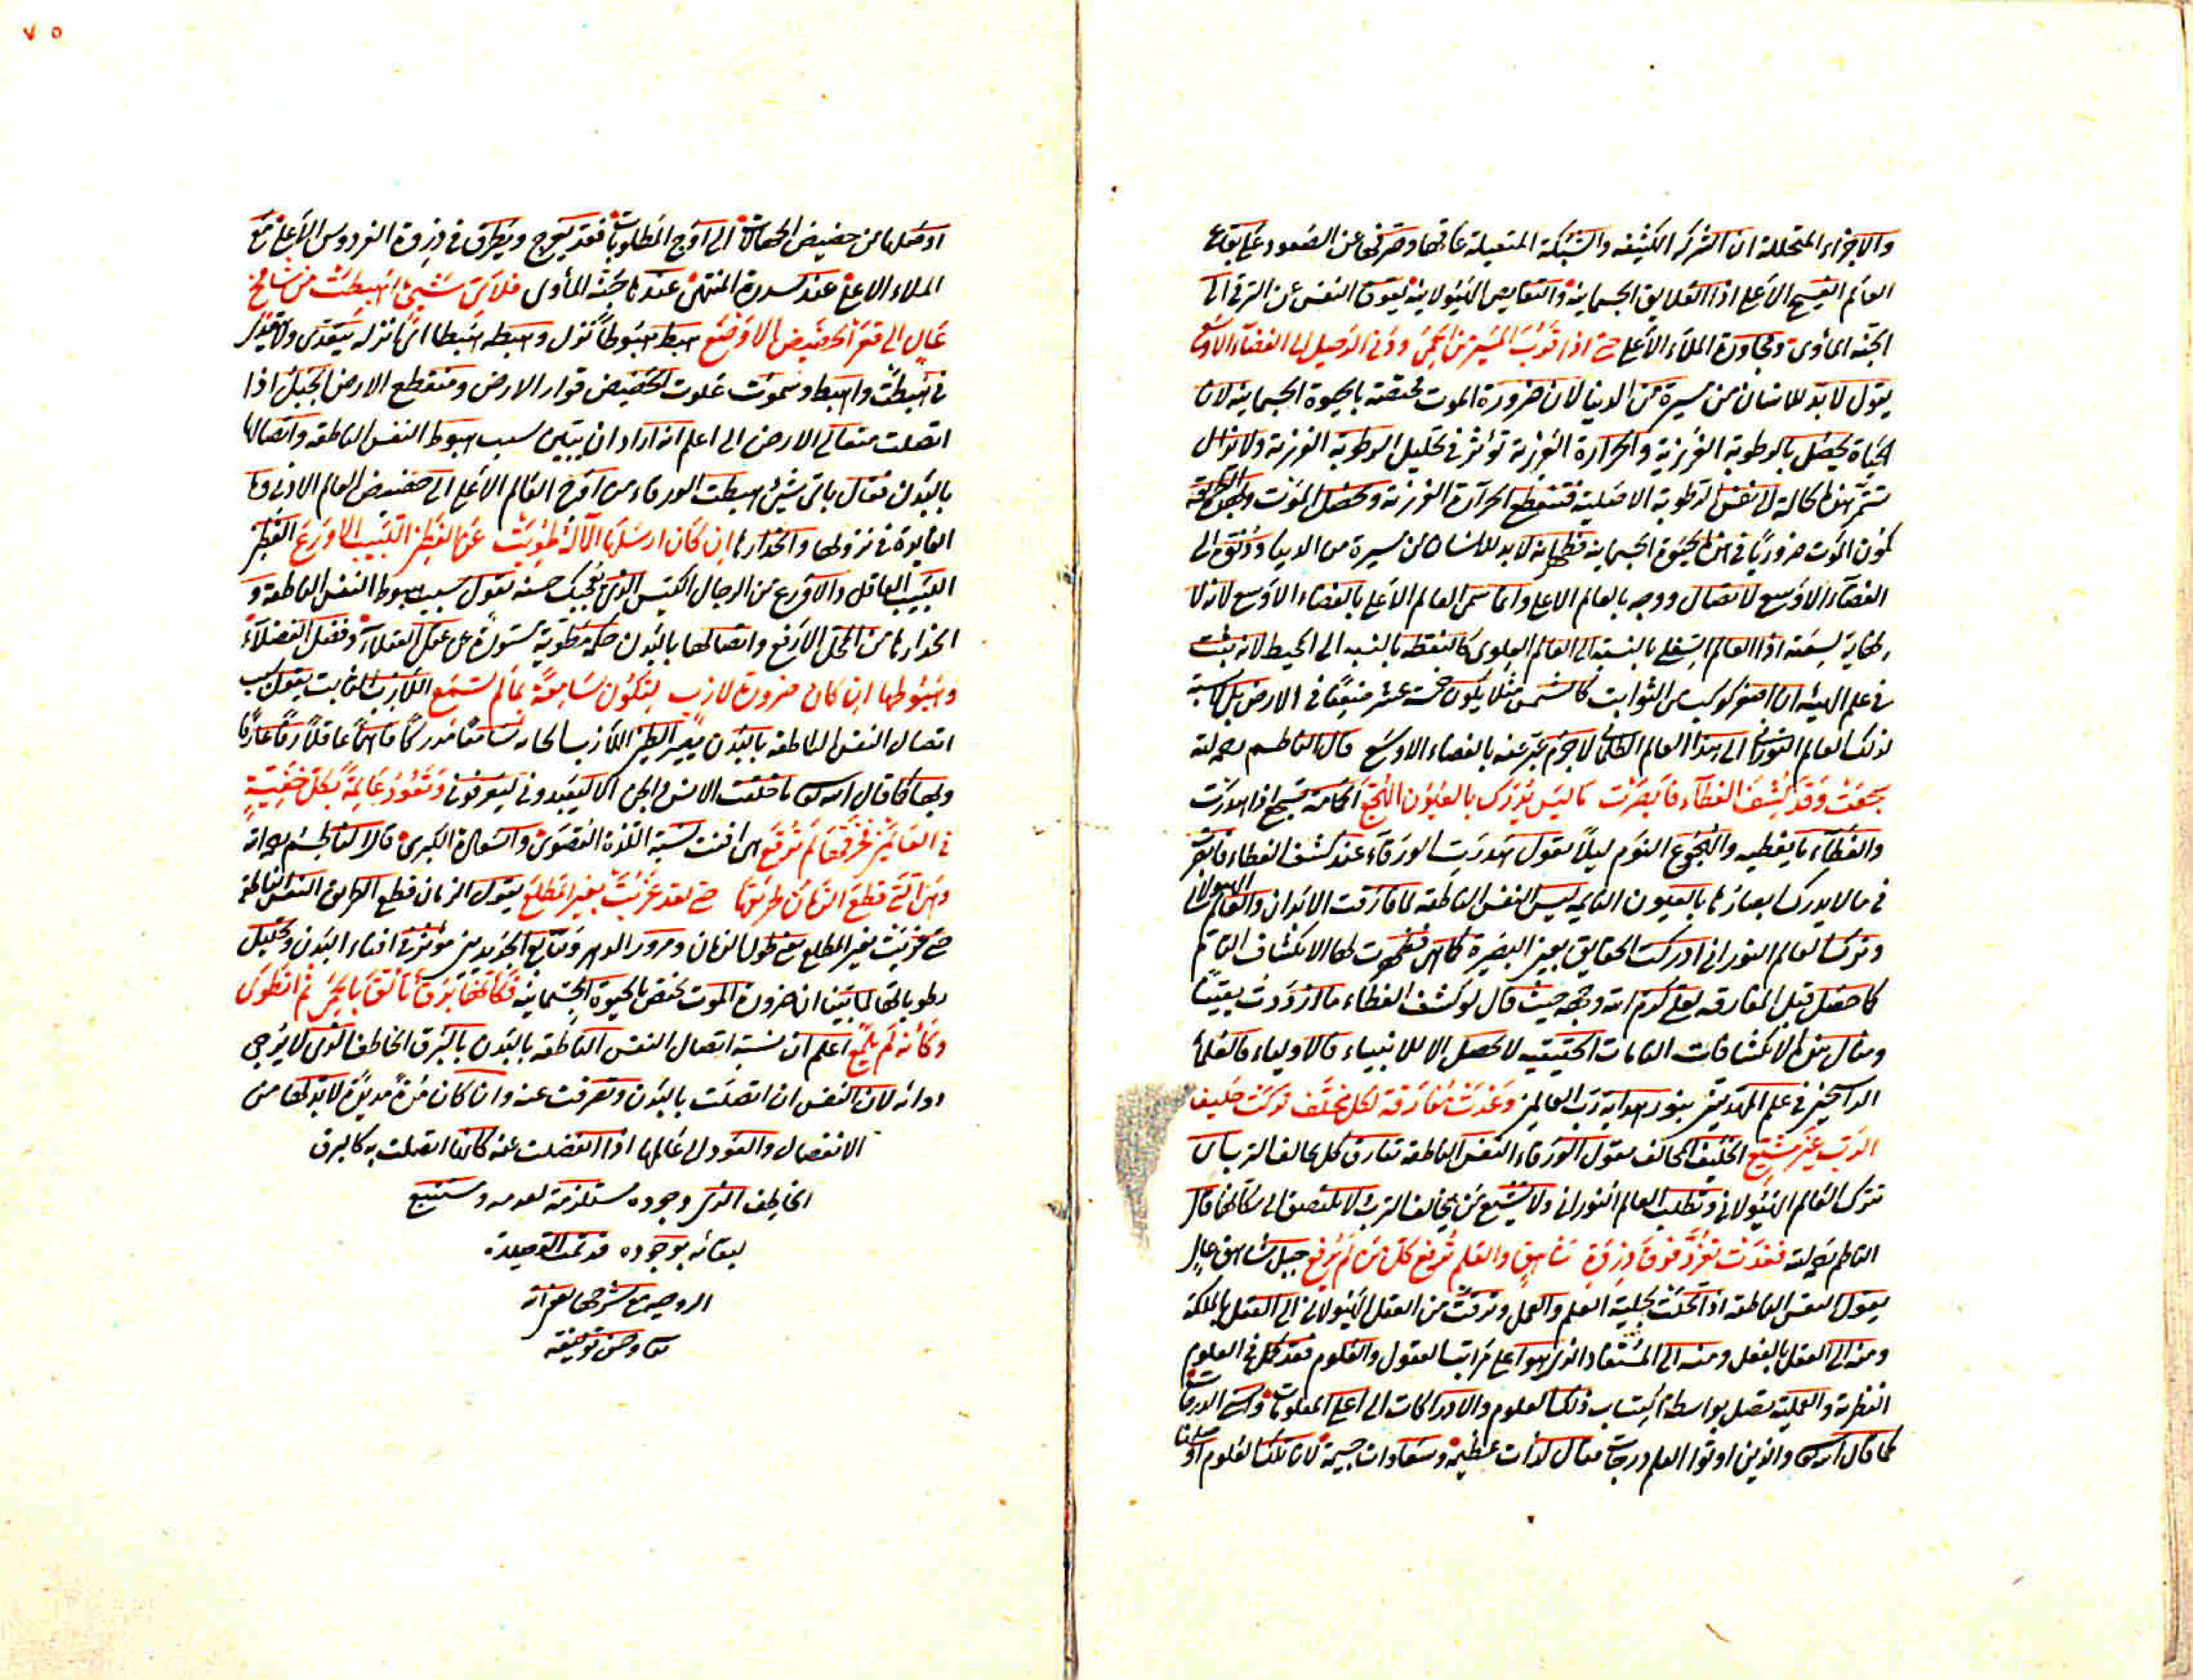 والاجزاء المتحللة ان الشرك الكثيفه والشبكة الثقيلة عاقها وصرفها عن الصعود على بقاع
العالم الفسيح الاعلى اذ العلايق الجسمانية والنقايص الهيولانية يعوق النفس عن الترقى الى
الجنة المأوى ومجاورة الملاء الاعلى حتى اذا قرب المسير من الحمى ودنى الرحيل الى الفضاء الاوسع
يقول لا بد للانسان من مسيرة من الدنيا لان ضرورة الموت مختصة بالحيوة الجسمانية لان
الحياة يحصل بالرطوبة الغريزية والحرارة الغريزية تؤثر فى تحليل الرطوبة الغريزية ولا تزال
تستمر هذه الحالة الى نفس الرطوبة الاصلية فتنقطع الحرارة الغريزية ويحصل الموت
كون الموت ضروريا فى هذه الحيوة الجسمانية فظهر انه لا بد للانسان من مسيرة من الدنيا ودنوه الى
الفضاء الاوسع لاتصال روحه بالعالم الاعلى وانما سمى العالم الاعلى بالفضاء الاوسع لانه لا
نهاية لسعته اذ العالم السفلى بالنسبة الى العالم العلوى كالنقطة بالنسبة الى المحيط لانه يثبت
فى علم الهيئة ان اصغر كوكب من الثوابت كالشمس مثلا يكون خمسة عشر ضعفا فى الارض بل لا نسبة
لذلك العالم النورانى الى هذا العالم الظلمانى لا جرم عبر عنه بالفضاء الاوسع قال الناظم رحمه الله
سجعت وقد كشف الغطاء فابصرت ما ليس يدرك بالعيون الهجع الحمامة تسجع اذا هدرت
والغطاء ما يغطيه والهجوع النوم ليلا يقول هدرت الورقاء عند كشف الغطاء فابصرت
فى ما لا يدرك ابصارها بالعيون النايمة ليس النفس الناطقة لما فارقت الابدان والعالم الهيولانى
وتركت العالم النورانى ادركت الحقايق بعين البصيرة كما هى فظهرت لها الانكشاف التام
كما حصل قبل المفارقة لعلى كرم الله وجهه حيث قال لو كشف الغطاء ما ازددت يقينا
ومثال هذه الانكشافات التامات الحقيقية لا يحصل الا للانبياء فالاولياء فالعلماء
الراسخين فى علم المهتدين بنور هداية رب العالمين وغدت مفارقة لكل مخلف تركت حليف
الترب غير مشيع الحليف المحالف يقول الورقاء النفس الناطقة تفارق كل محالف الترب بان
تترك العالم الهيولانى وتطلب العالم النورانى ولا يشيع من يحالف الترب لا يلتصق الى مكانها قال
الناظم رحمه الله فغدت تغرد فوق ذروة شاهق والعلم يرفع كل من لم يرفع جبل شاهق عال
يقول النفس الناطقة اذا تحلت بحلية العلم والعمل وترقت من العقل الهيولانى الى العقل بالملكة
ومنه الى العقل بالفعل ومنه الى المستفاد الذى هو اعلى مراتب العقول والعلوم فقد كمل فى العلوم
النظرية والعملية يصل بواسطة اكتساب ذلك العلوم والادراكات الى اعلى المعلومات واسنى الدرجات
كما قال الله تعالى والذين اوتوا العلم درجات ينال لذات عظيمة وسعادات جسيمة لان تلك العلوم
اوصلها من حضيض الجهالات الى اوج المطلوبات فقد يعرج ويطرق فى ذروة الفردوس الاعلى مع
الملاء الاعلى عند سدرة المنتهى عندها جنة المأوى فلاى شئ اهبطت من شامخ
عال الى قعر الحضيض الاوضع هبط هبوطا نزل وهبطه هبطا اى انزله يتعدى ولا يتعدى
فى هبطت واهبط وسموت علوت الحضيض قرار الارض ومنقطع الارض الجبل اذا
اتصلت متعالى الارض الى اعلم انه اراد ان يتبين سبب هبوط النفس الناطقة واتصالها
بالبدن فقال باى شئ اهبطت الورقاء من اوج العالم الاعلى الى حضيض العالم الادنى وما
الفايدة فى نزولها وانحدارها ان كان ارسلها الاله طويت عن الفطن اللبيب الاورع الفطن
اللبيب العاقل والاورع من الرجال الكيس الذى يعجبك حسنه يقول سبب هبوط النفس الناطقة و
انحدارها من المحل الارفع واتصالها بالبدن حكمة مطوية مستورة عن عقل العقلاء وفضل الفضلاء
وهبوطها ان كان ضربة لازب لتكون سامعة بما لم تسمع اللازب الثابت يقول سبب
اتصال النفس الناطقة بالبدن
وبها كما قال الله تعالى ما خلقت الانس والجن الا ليعبدون ليعرفونى وتعود عالمة بكل خفية
فى العالمين فخرقها لم يرقع
وهى التى قطع الزمان طريقها حتى لقد غربت بغير المطلع يقول الزمان قطع الطريق النفس الناطقة
حتى غربت بغير المطلع يعنى طول الزمان ومرور الدهر وتتابع الجديدين مؤثر فى افناء البدن وتحليل
رطوباتها لما بينا ان ضرورة الموت يختص بالحيوة الجسمانية فكأنها برق تألق بالحمى ثم انطوى
وكأنه لم يلمع اعلم ان نسبة اتصال النفس الناطقة بالبدن بالبرق الخاطف الذى لا يرجى
دوامه لان النفس ان اتصلت بالبدن وتصرفت عنه وان كان مدة مديدة لا بد لها من
الانفصال والعود الى عالمها اذا انفصلت عنه كانها اتصلت به كالبرق
الخاطف الذى وجوده مستلزمة لعدمه ومستتبع
لبقائه بوجوده قد تمت القصيدة
الروحية مع شرحها بعون الله
تعالى وحسن توفيقه
٧٥